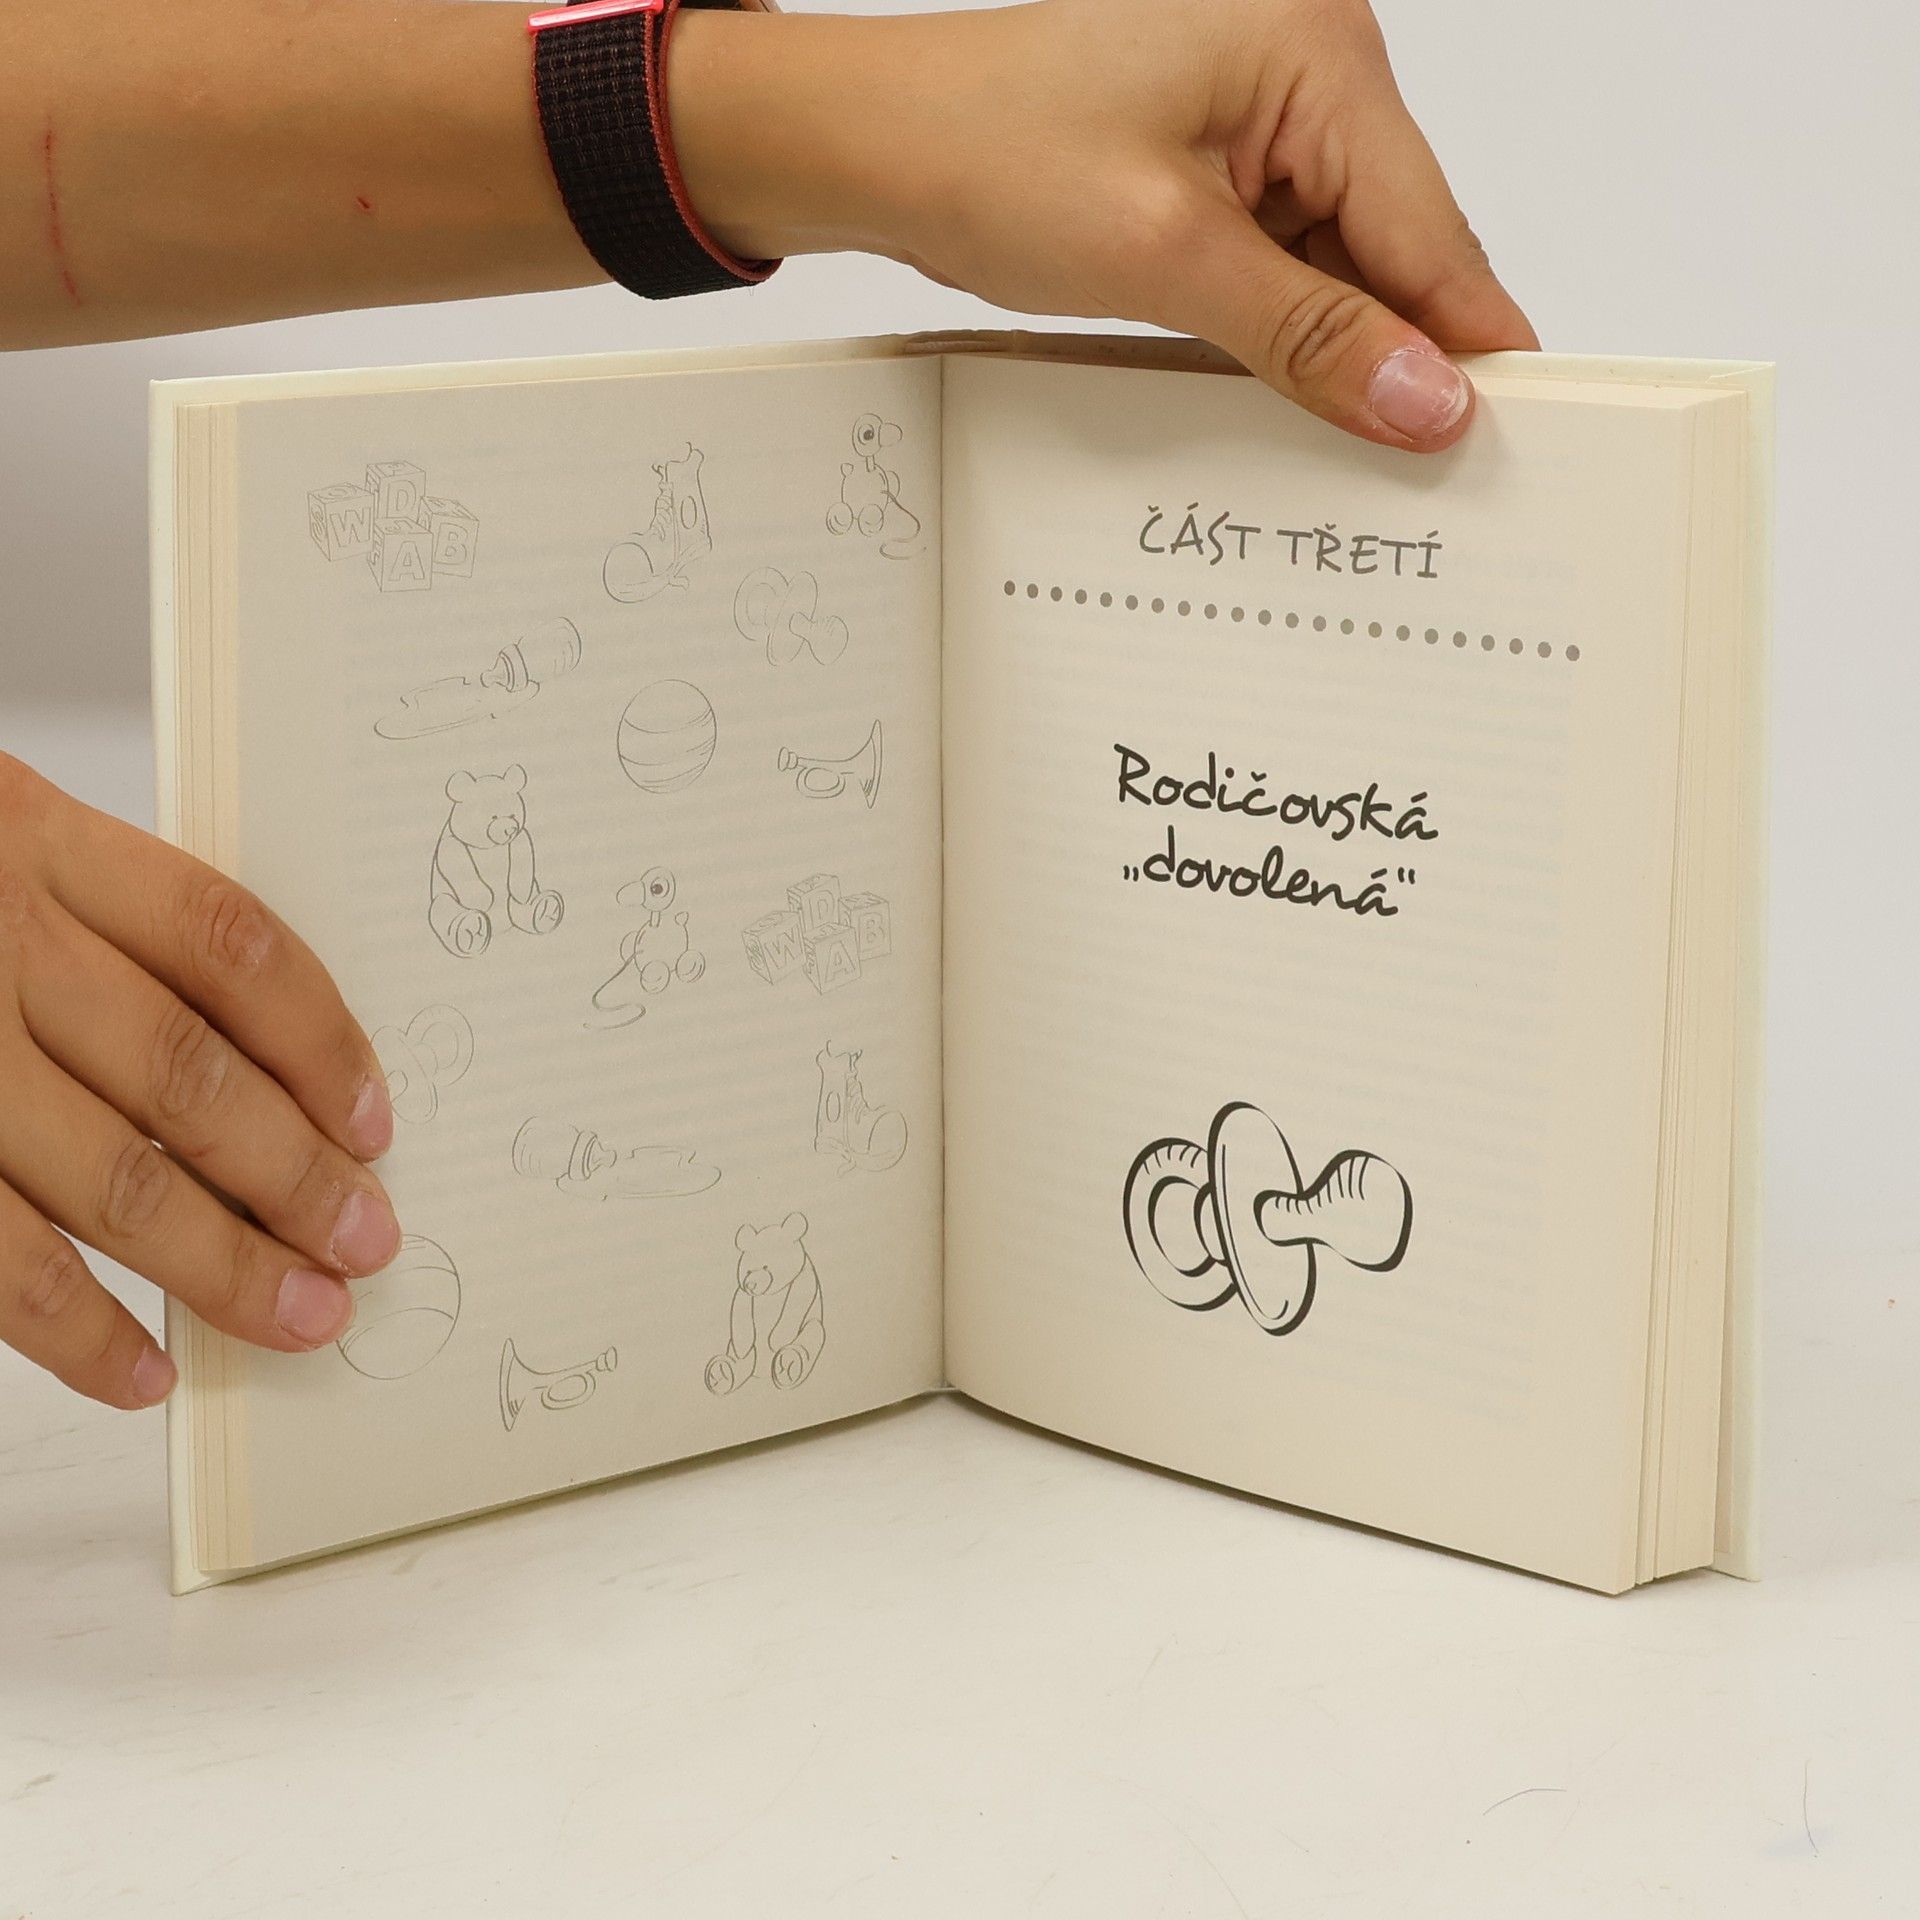 D
W
B
A
ČÁST TŘETÍ
Rodičovská
„dovolená“
D
W
B
A